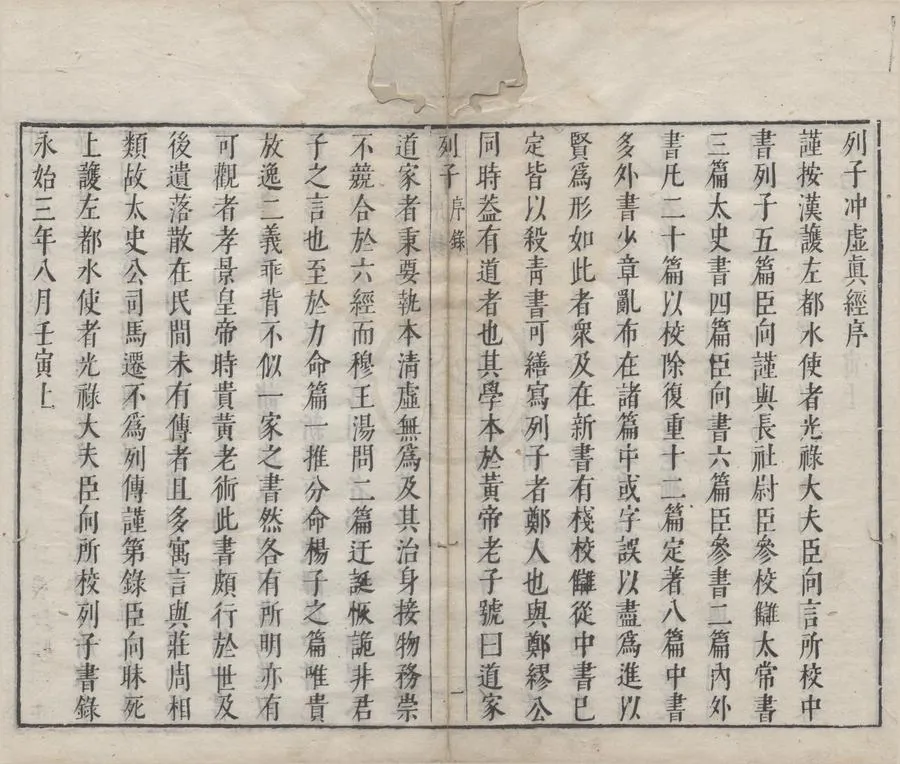 列子冲虛眞經序
謹按漢護左都水使者光祿大夫臣向言所校中
書列子五篇臣向謹與長社尉臣參校讎太常書
三篇太史書四篇臣向書六篇臣參書二篇內外
書凡二十篇以校除復重十二篇定著八篇中書
多外書少章亂布在諸篇中或字誤以盡爲進以
賢爲形如此者衆及在新書有棧校讎從中書已
定皆以殺靑書可繕寫列子者鄭人也與鄭繆公
同時葢有道者也其學本於黃帝老子號曰道家
列子 序錄 一
道家者秉要執本清虛無爲及其治身接物務崇
不競合於六經而穆王湯問二篇迂誕恢詭非君
子之言也至於力命篇一推分命楊子之篇唯貴
放逸二義乖背不似一家之書然各有所明亦有
可觀者孝景皇帝時貴黃老術此書頗行於世及
後遺落散在民間未有傳者且多寓言與莊周相
類故太史公司馬遷不爲列傳謹第錄臣向昧死
上護左都水使者光祿大夫臣向所校列子書錄
永始三年八月壬寅上